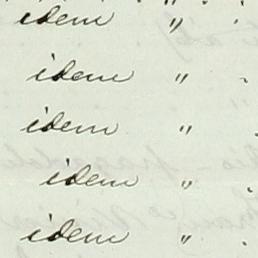 idem "
idem "
idem "
idem "
idem "